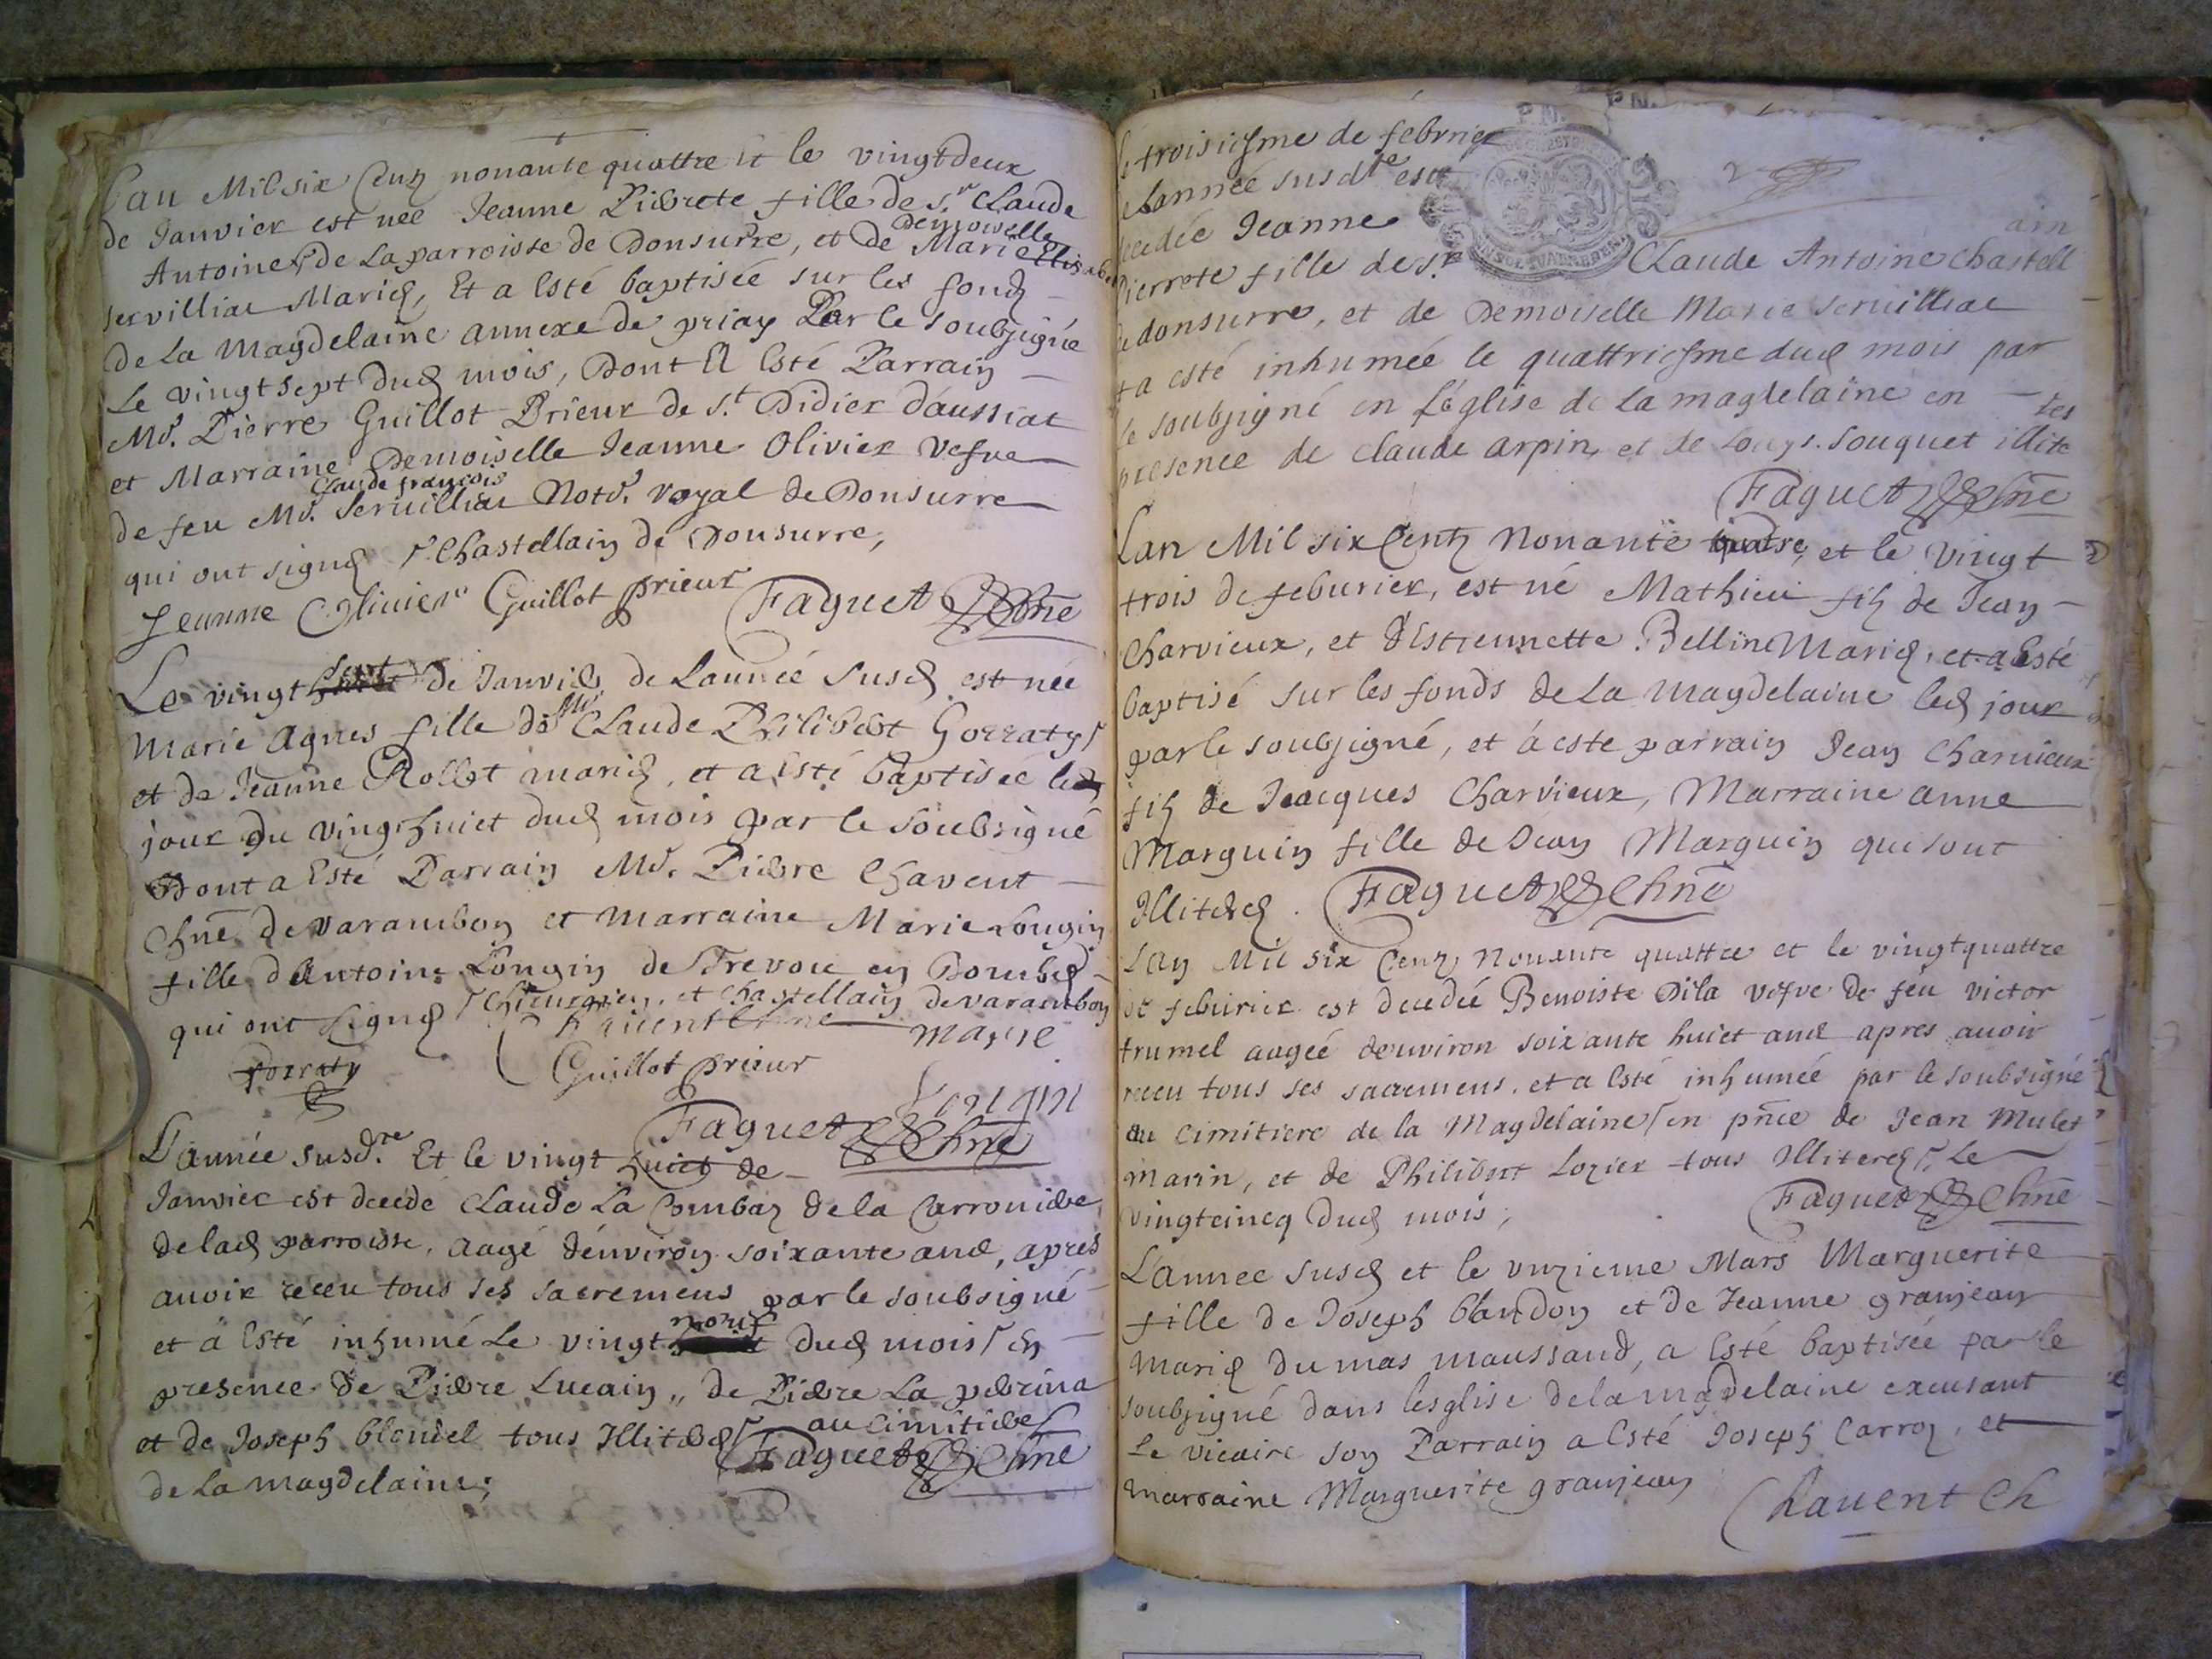 Lan Mil six Centz nonante quattre et le vingt deux
de Janvier est née Jeanne Pierrete fille de Sr Claude
Antoine de la parroisse de Donsurre, et de Demoiselle Marie
Servilliat Mariés, Et a Esté baptisée sur les fonds
de la Magdelaine annexe de priay Par le soubsigné
Le vingt sept dud mois, Dont A Esté Parrain
Mr. Pierre Guillot Prieur de St Didier d'aussiat
et Marraine Demoiselle Jeanne Olivier Vefve
de feu Mr. Claude françois Servilliat Notr. royal de Donsurre
qui ont signé Chastellain de Donsurre,
Jeanne Olivier Guillot prieur Faguet Chne
Le vingt sept de Janvier de Lannée susd est née
Marie Agnes fille de Mr Claude Philibert Gorraty
et de Jeanne Rollet mariés, et a Esté baptisée le
jour du vingt huict dud mois par le soubsigné
Dont a Esté Parrain Mr. Pierre Chavent
Chne de Varambon et Marraine Marie Longin
fille d'Antoine Longin de Trevou en Dombes
qui ont signé Chirurgien, et Chastellain de varambon
Chavent Chne Marie
Gorraty Guillot prieur
Longin
Faguet Chne
L'année susd.te Et le vingt huict de
Janvier est decedé Claude La Combaz de la Carroniere
de lad parroisse, aagé d'environ soixante ans, apres
avoir receu tous ses sacremens par le soubsigné
et a Esté inhumé Le vingt noeuf dud mois En
presence de Pierre Lucain, de Pierre La perrina
et de Joseph blondel tous Illiterés au Cimitiere
de La Magdelaine; Faguet Chne
le troisiesme de febvrier
de Lannée susdte est
decedée Jeanne
Pierrete fille de Sr Claude Antoine Chastellain
de donsurre, et de Demoiselle Marie Servilliat
et a esté inhumée le quattriesme dud mois par
le soubsigné en l'église de la magdelaine en
presence de Claude arpin, et de Louys Souquet illiterés
Faguet Chne
Lan Mil six Centz Nonante quatre, et le vingt
trois de feburier, est né Mathieu filz de Jean
Charvieux, et d'Estiennette Bellin Mariés, et a Esté
baptisé sur les fonds de La Magdelaine led jour
par le soubsigné, et à esté parrain Jean Charvieux
filz de Jeacques Charvieux, Marraine anne
Marguin fille de Jean Marguin qui sont
Illiterés. Faguet Chne
Lan Mil six Centz Nonante quattre et le vingt quattre
de feburier est decedée Benoiste Dila vefve de feu victor
trumel aagée denviron soixante huict ans apres avoir
receu tous ses sacremens. et a Esté inhumée par le soubsigné
au Cimitiere de la Magdelaine en pnce de Jean Mulet
Marin, et de Philibert Lozier tous Illiterés, Le
vingt cincq dud mois, Faguet Chne
Lannee susd et le unzieme Mars Marguerite
fille de Joseph blandon et de Jeanne granjean
Mariés du mas maussand, a Esté baptisée par le
soubsigné dans lesglise de la magdelaine excusant
le vicaire son Parrain a Esté Joseph Carroz, et
marraine Marguerite granjean
Chavent Ch